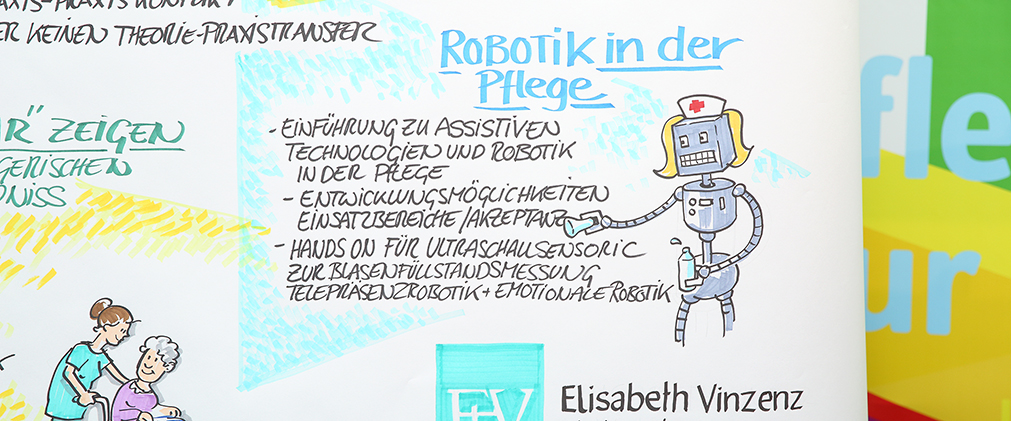 PRAXIS KONFLIKT
ER KEINEN THEORIE-PRAXISTRANSFER
ROBOTIK in der
Pflege
- EINFÜHRUNG ZU ASSISTIVEN
TECHNOLOGIEN UND ROBOTIK
IN DER PFLEGE
- ENTWICKLUNGSMÖGLICHKEITEN
EINSATZBEREICHE/AKZEPTANZ
- HANDS ON FÜR ULTRASCHALLSENSORIC
ZUR BLASENFÜLLSTANDSMESSUNG
TELEPRÄSENZROBOTIK + EMOTIONALE ROBOTIK
AR" ZEIGEN
GERISCHEN
NISS
E+V
Elisabeth Vinzenz
fle
ur